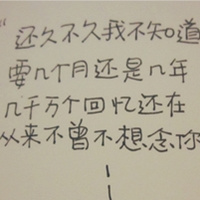 "还久不久我不知道
要几个月还是几年
几千万个回忆还在
从来不曾不想念你